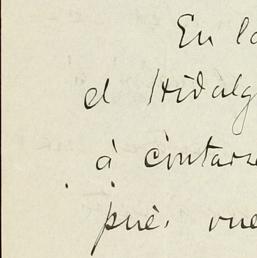 En lo
el Hidalg
à contarse
pué. vue